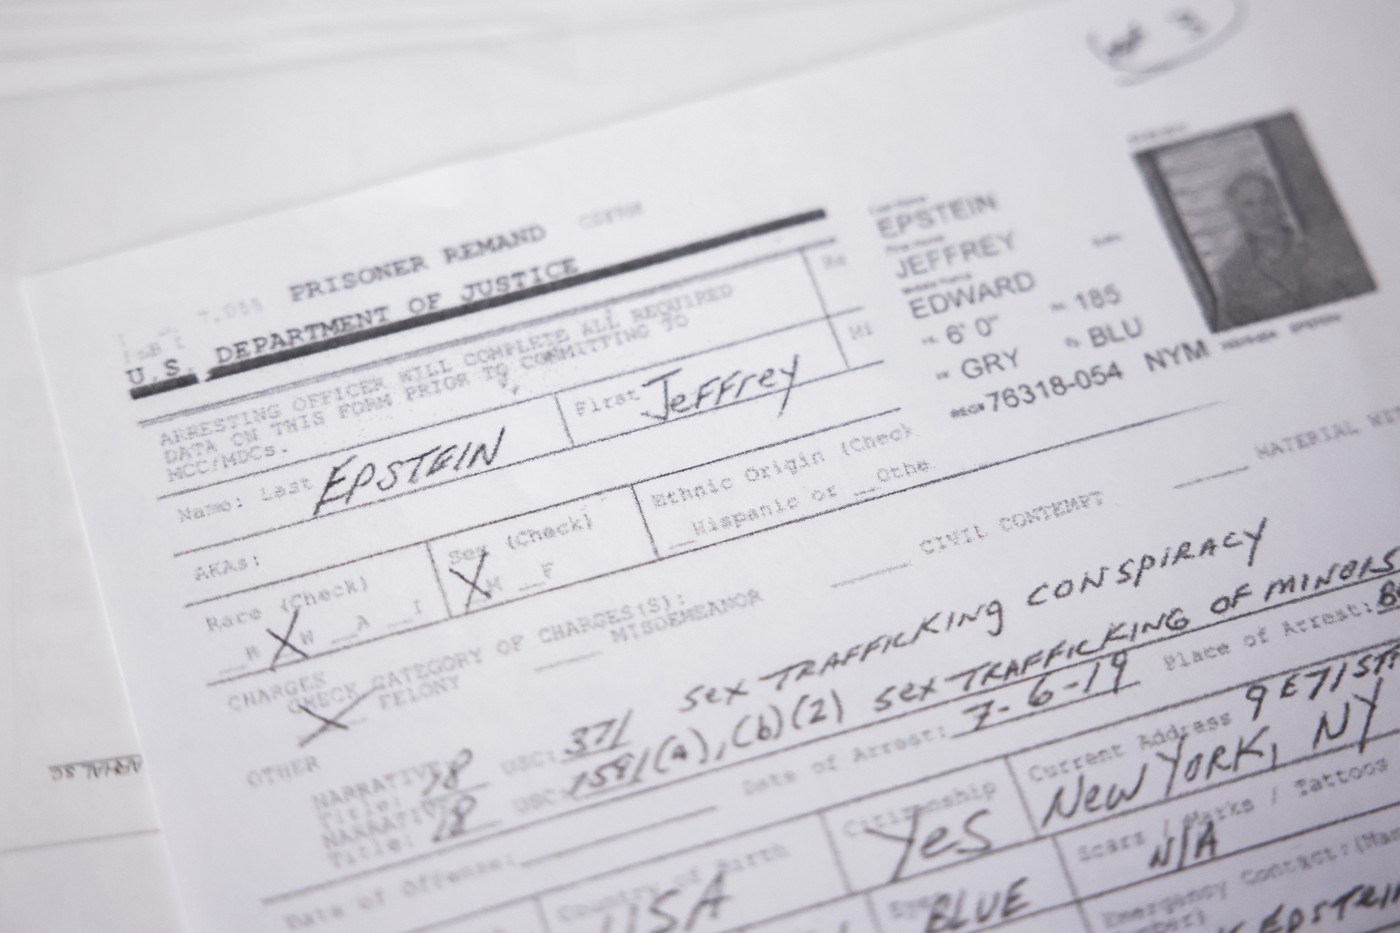 Sept 3
PRISONER REMAND
U.S. DEPARTMENT OF JUSTICE
ARRESTING OFFICER WILL COMPLETE ALL REQUIRED
DATA ON THIS FORM PRIOR TO COMMITTING TO
MCC/MDCs.
Last Name
EPSTEIN
First Name
JEFFREY
Middle Name
EDWARD
6' 0" 185
GRY BLU
REG# 76318-054 NYM
Name: Last EPSTEIN First Jeffrey
AKAs:
Race (Check) Sex (Check) Ethnic Origin (Check
X W __A __I X M __F __Hispanic or __Othe
CHARGES
CHECK CATEGORY OF CHARGES(S):
X FELONY ____ MISDEMEANOR ____ CIVIL CONTEMPT ____ MATERIAL
OTHER
NARRATIVE:
Title: 18 USC: 371 Sex TRAFFICKING CONSPIRACY
NARRATIVE:
Title: 18 USC: 1591(a),(b)(2) Sex TRAFFICKING OF MINORS
Date of Offense: Date of Arrest: 7-6-19 Place of Arrest:
Country of Birth USA Citizenship Yes Current Address 9 E 71 ST
New YORK, NY
BLUE Scars / Marks / Tattoos
N/A
Emergency Contact:
EPSTEIN